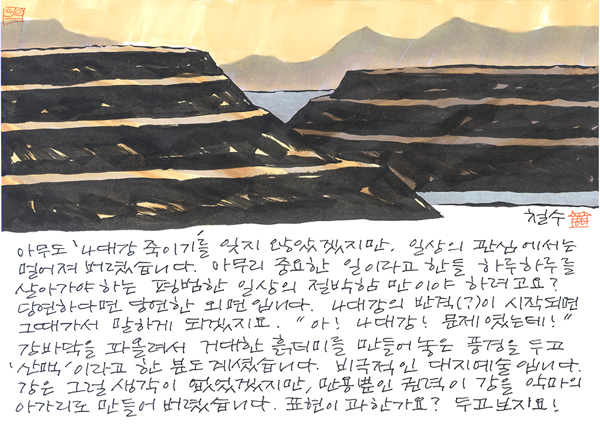 철수
아무도 '4대강 죽이기'를 잊지 않았겠지만, 일상의 관심에서는
멀어져 버렸습니다. 아무리 중요한 일이라고 한들 하루하루를
살아가야 하는 평범한 일상의 절박함만이야 하려고요?
당연하다면 당연한 외면입니다. 4대강의 반격(?)이 시작되면
그때가서 말하게 되겠지요. "아! 4대강! 문제였는데!"
강바닥을 파올려서 거대한 흙더미를 만들어 놓은 풍경을 두고
'산맥'이라고 한 분도 계셨습니다. 비극적인 대지예술입니다.
강은 그럴 생각이 없었겠지만, 만용뿐인 권력이 강을 악마의
아가리로 만들어 버렸습니다. 표현이 과한가요? 두고보지요!